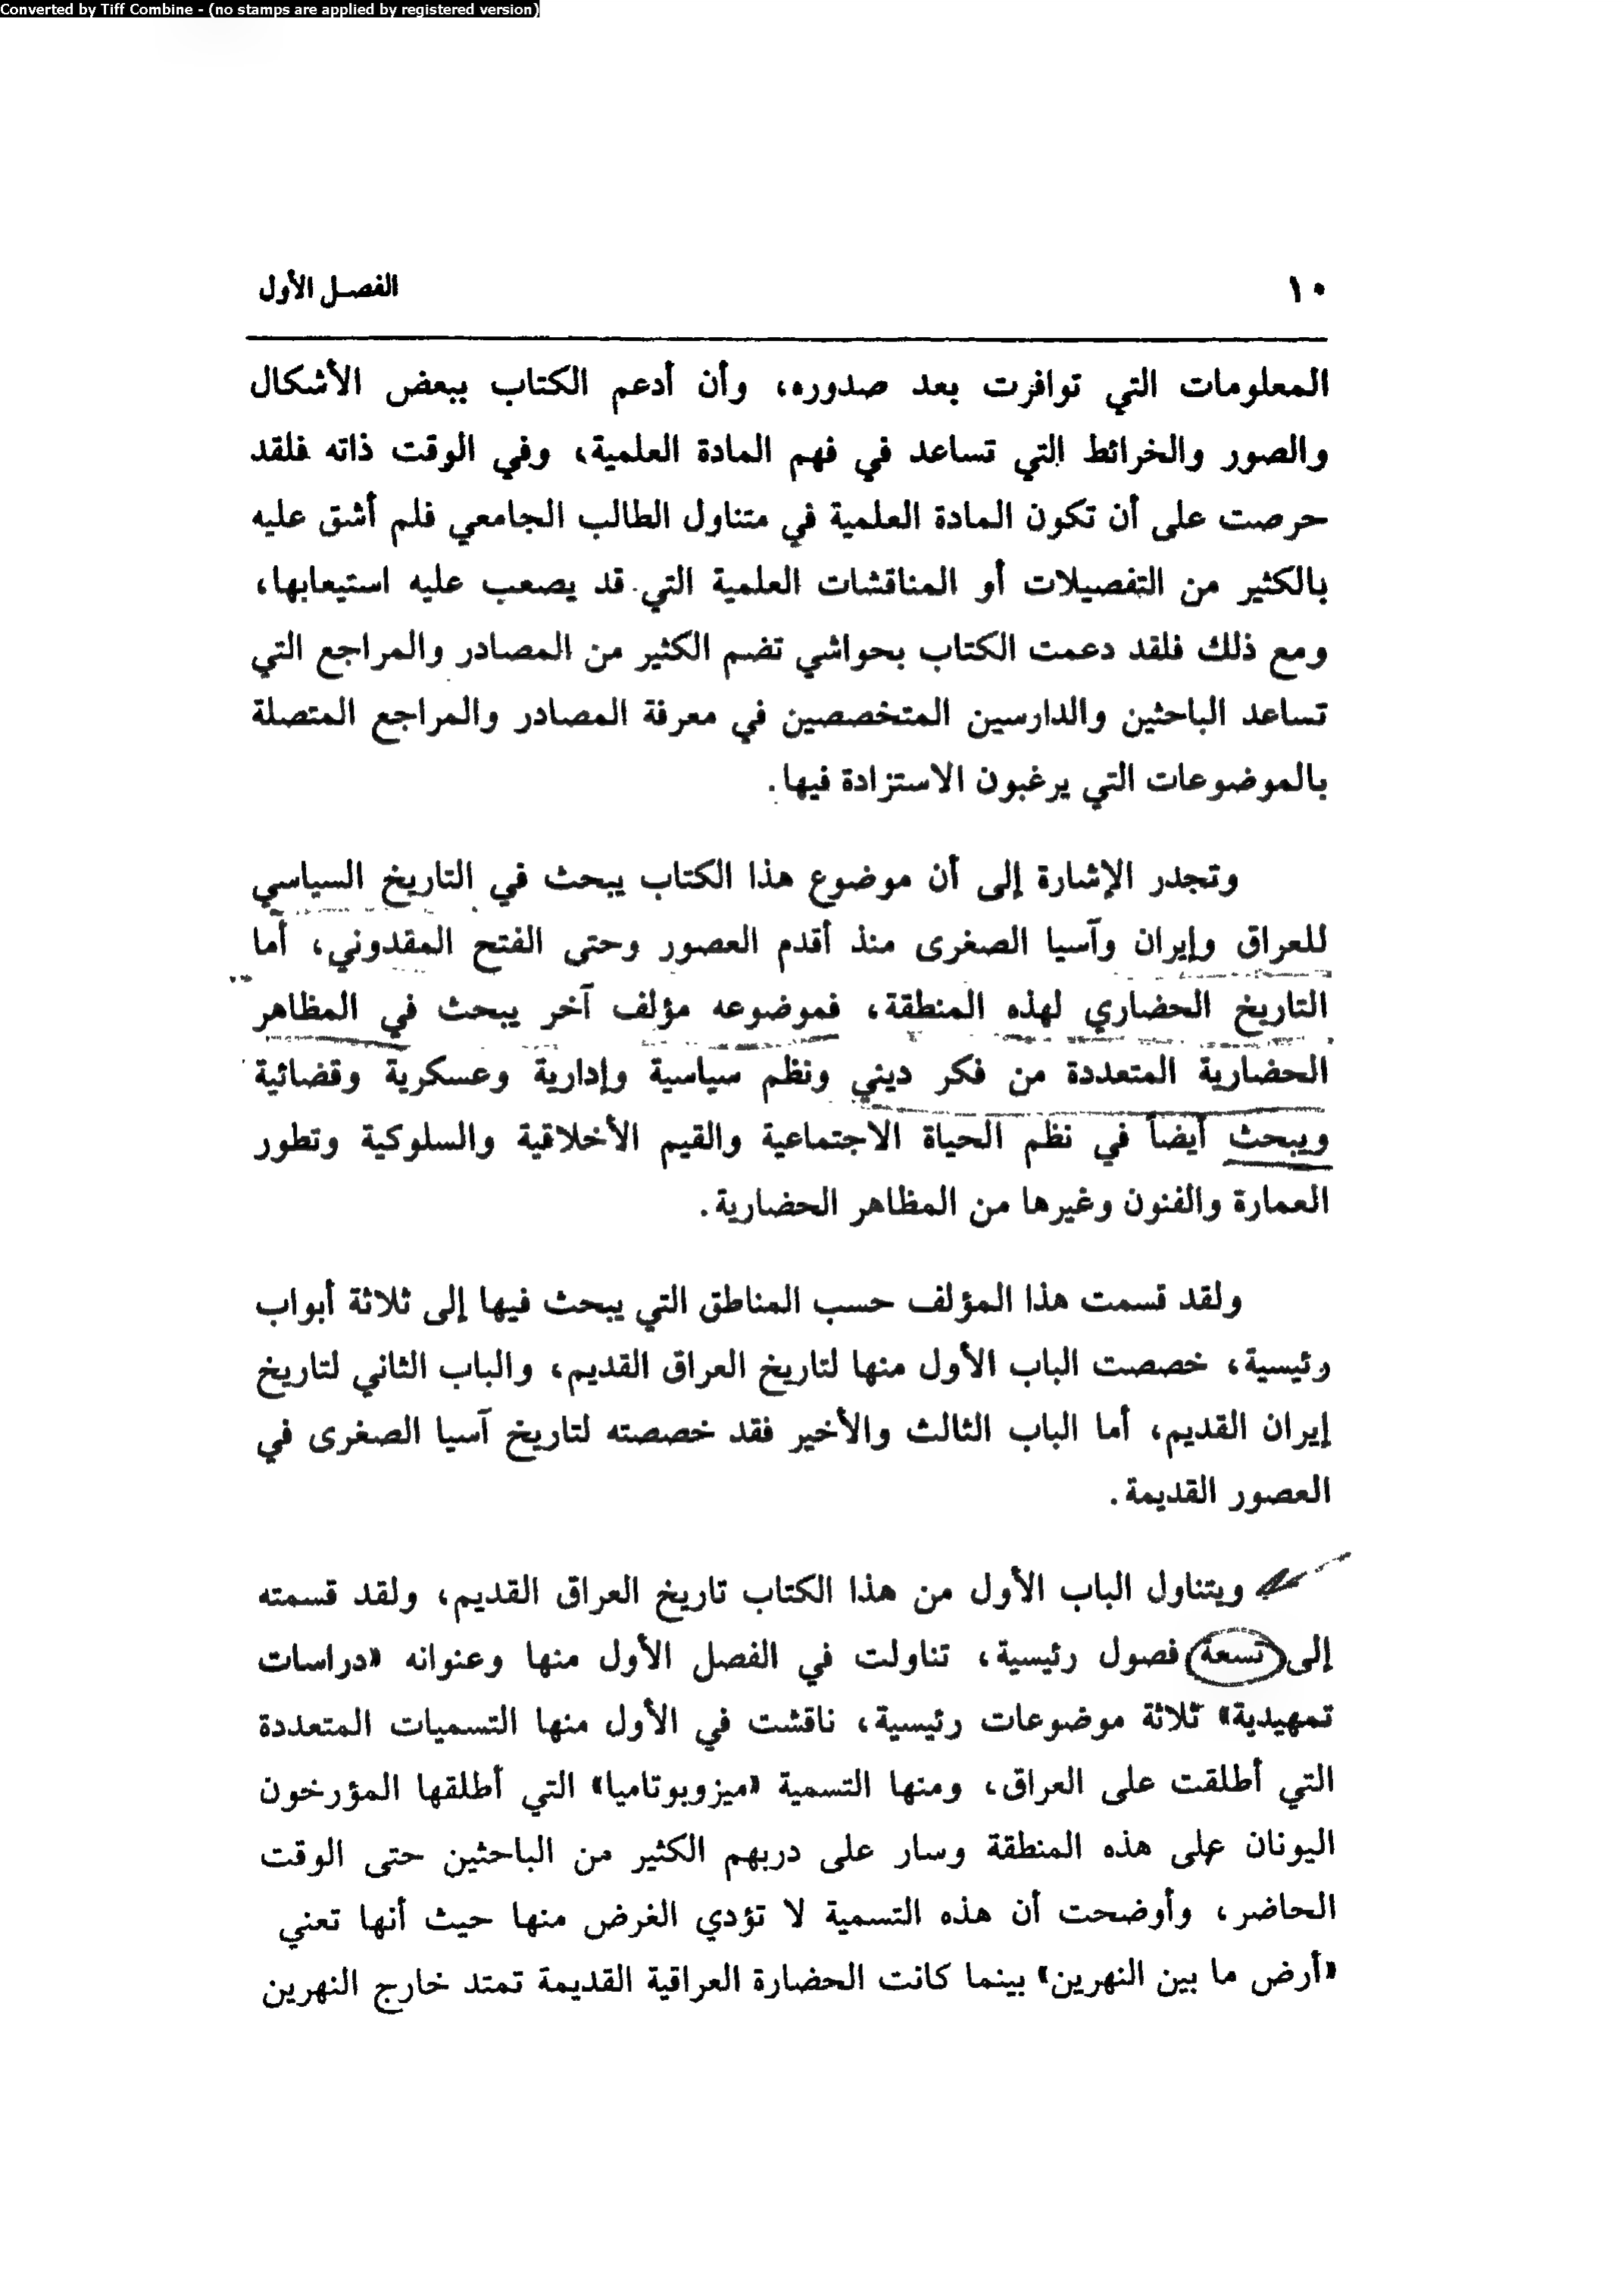 Converted by Tiff Combine - (no stamps are applied by registered version)
١٠ الفصل الأول
المعلومات التي توافرت بعد صدوره، وأن أدعم الكتاب ببعض الأشكال
والصور والخرائط التي تساعد في فهم المادة العلمية، وفي الوقت ذاته فلقد
حرصت على أن تكون المادة العلمية في متناول الطالب الجامعي فلم أشق عليه
بالكثير من التفصيلات أو المناقشات العلمية التي قد يصعب عليه استيعابها،
ومع ذلك فلقد دعمت الكتاب بحواشي تضم الكثير من المصادر والمراجع التي
تساعد الباحثين والدارسين المتخصصين في معرفة المصادر والمراجع المتصلة
بالموضوعات التي يرغبون الاستزادة فيها.
وتجدر الإشارة إلى أن موضوع هذا الكتاب يبحث في التاريخ السياسي
للعراق وإيران وآسيا الصغرى منذ أقدم العصور وحتى الفتح المقدوني، أما
التاريخ الحضاري لهذه المنطقة، فموضوعه مؤلف آخر يبحث في المظاهر
الحضارية المتعددة من فكر ديني ونظم سياسية وإدارية وعسكرية وقضائية
ويبحث أيضاً في نظم الحياة الاجتماعية والقيم الأخلاقية والسلوكية وتطور
العمارة والفنون وغيرها من المظاهر الحضارية.
ولقد قسمت هذا المؤلف حسب المناطق التي يبحث فيها إلى ثلاثة أبواب
رئيسية، خصصت الباب الأول منها لتاريخ العراق القديم، والباب الثاني لتاريخ
إيران القديم، أما الباب الثالث والأخير فقد خصصته لتاريخ آسيا الصغرى في
العصور القديمة.
ويتناول الباب الأول من هذا الكتاب تاريخ العراق القديم، ولقد قسمته
إلى تسعة فصول رئيسية، تناولت في الفصل الأول منها وعنوانه «دراسات
تمهيدية» ثلاثة موضوعات رئيسية، ناقشت في الأول منها التسميات المتعددة
التي أطلقت على العراق، ومنها التسمية «ميزوبوتاميا» التي أطلقها المؤرخون
اليونان على هذه المنطقة وسار على دربهم الكثير من الباحثين حتى الوقت
الحاضر، وأوضحت أن هذه التسمية لا تؤدي الغرض منها حيث أنها تعني
«أرض ما بين النهرين» بينما كانت الحضارة العراقية القديمة تمتد خارج النهرين